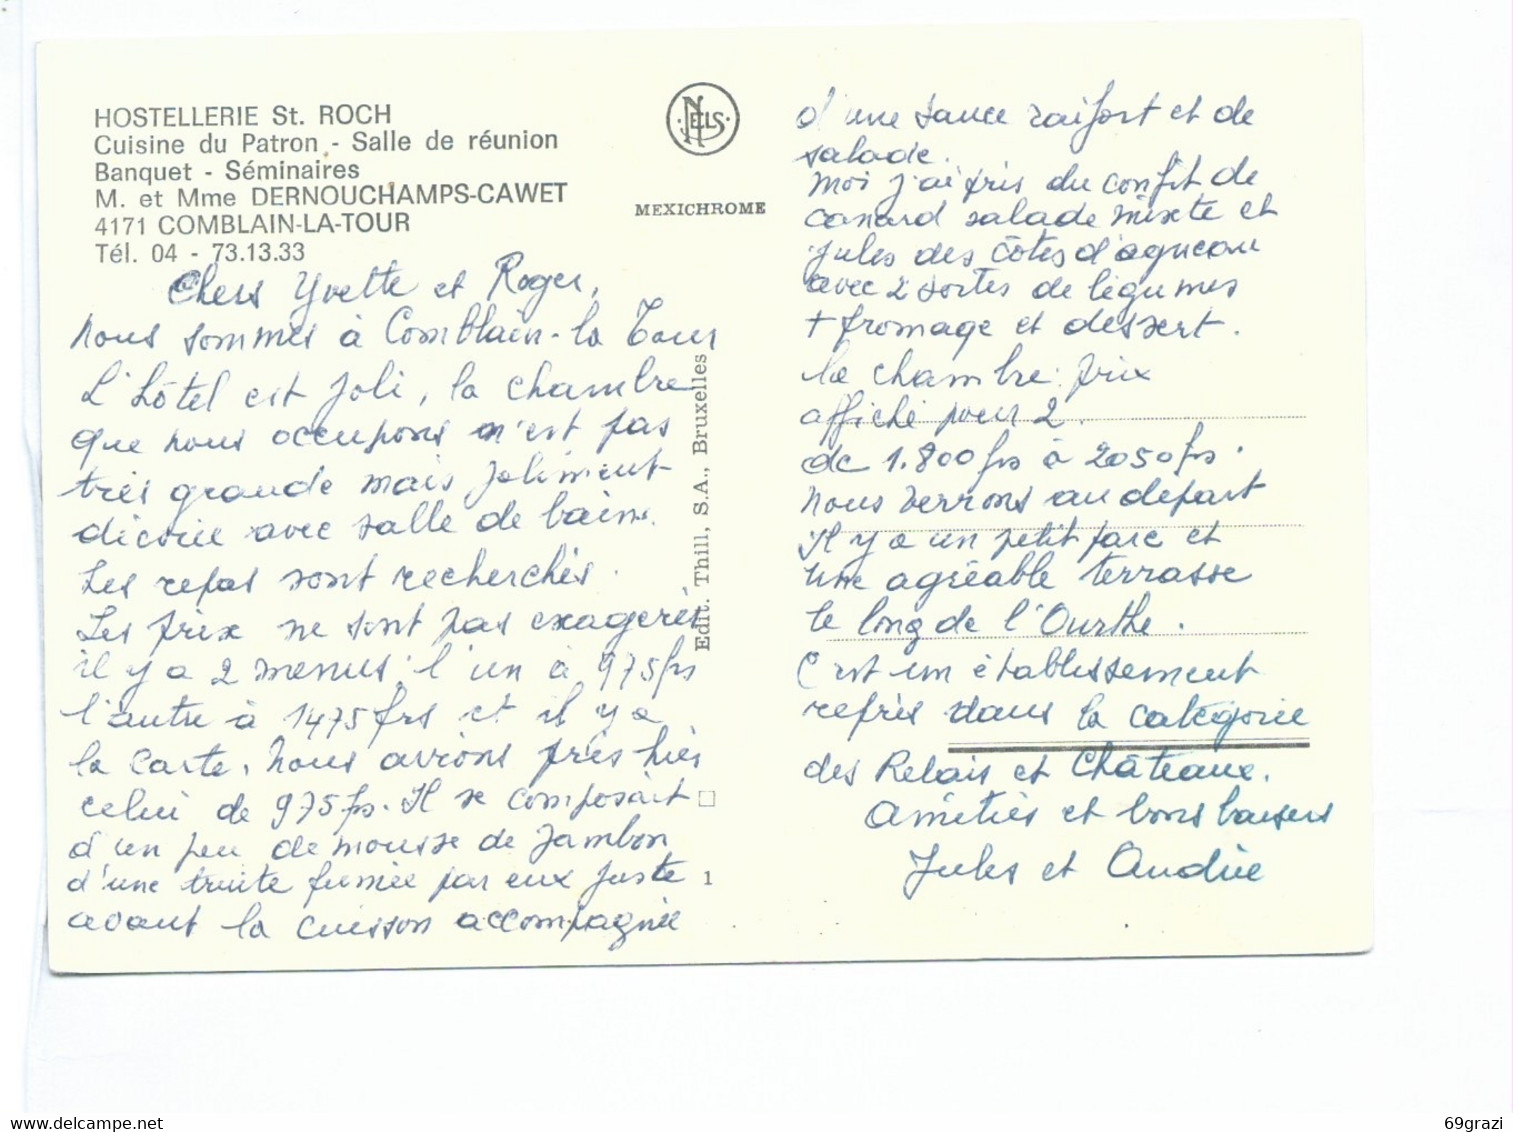 HOSTELLERIE St. ROCH
Cuisine du Patron - Salle de réunion
Banquet - Séminaires
M. et Mme DERNOUCHAMPS-CAWET
4171 COMBLAIN-LA-TOUR
Tél. 04 - 73.13.33
NELS
MEXICHROME
Edit. Thill, S.A., Bruxelles
1
Chers Yvette et Roger,
Nous sommes à Comblain-la Tour
L'hôtel est joli, la chambre
que nous occupons n'est pas
très grande mais joliment
décorée avec salle de bains.
Les repas sont recherchés.
Les prix ne sont pas exagerés
il y a 2 menus: l'un à 975 frs
l'autre à 1475 frs et il y a
la carte. Nous avions pris hier
celui de 975 frs. Il se composait
d'un peu de mousse de jambon
d'une truite fumée par eux juste
avant la cuisson accompagnée
d'une sauce raifort et de
salade.
Moi j'ai pris du confit de
canard salade mixte et
Jules des côtes d'agneau
avec 2 sortes de légumes
+ fromage et dessert.
la chambre: prix
affiché pour 2.
de 1.800 frs à 2050 frs.
Nous verrons au départ
Il y a un petit parc et
une agréable terrasse
le long de l'Ourthe.
C'est un établissement
repris dans la catégorie
des Relais et Châteaux.
Amitiés et bons baisers
Jules et Andrée
69grazi